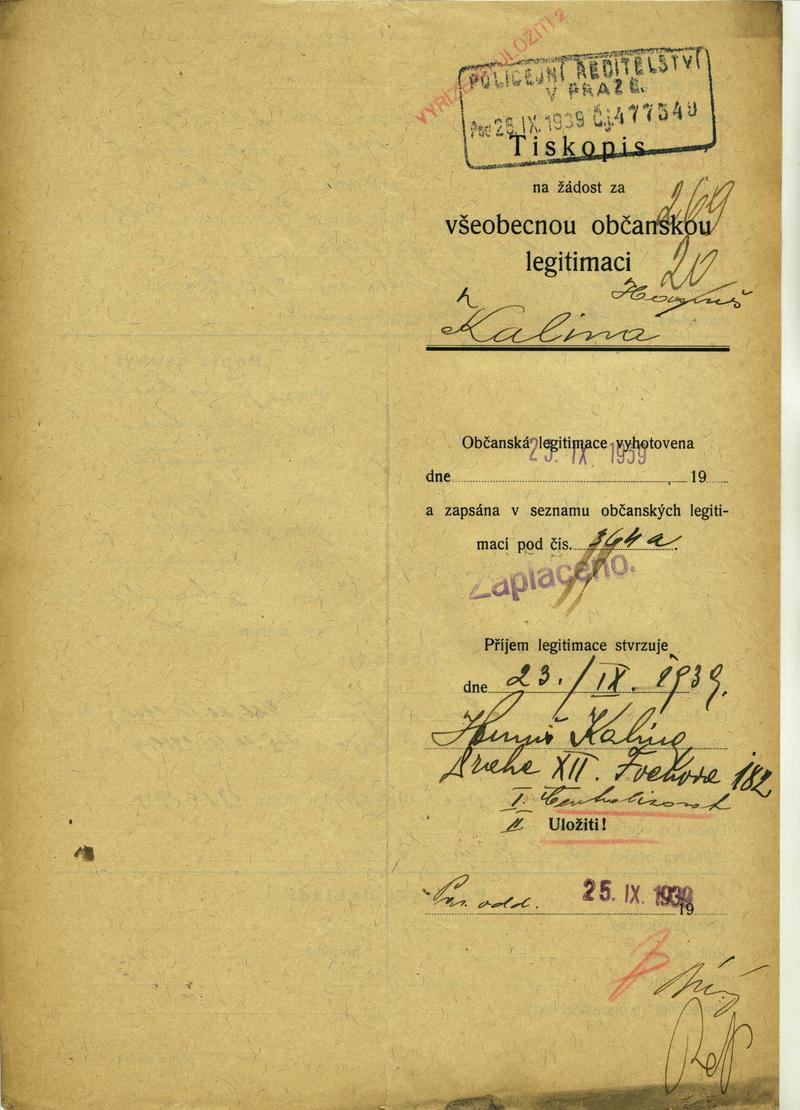 VYŘÍZENO ULOŽITI 2
POLICEJNÍ ŘEDITELSTVÍ
V PRAZE.
Pod 26. IX. 1939 Čj. 477549
Tiskopis
na žádost za
269
všeobecnou občanskou
legitimaci 20
Kalina
Občanská legitimace vyhotovena
23. IX 1939
dne 19
a zapsána v seznamu občanských legiti-
mací pod čís. 364a.
Zaplaceno.
Příjem legitimace stvrzuje
dne 23./IX. 1939.
Kalina
XII. Fochova 182
I.
II. Uložiti!
odd. 25. IX. 1939
19